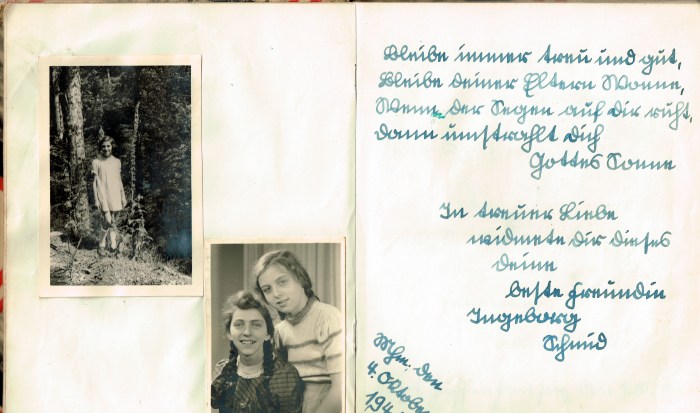 Bleibe immer treu und gut,
Bleibe deiner Eltern Wonne,
Wenn der Segen auf dir ruht,
dann umstrahlt dich
Gottes Sonne
In treuer Liebe
widmete dir dieses
deine
beste Freundin
Ingeborg
Schmid
Mhm. den
4. Oktobe
194